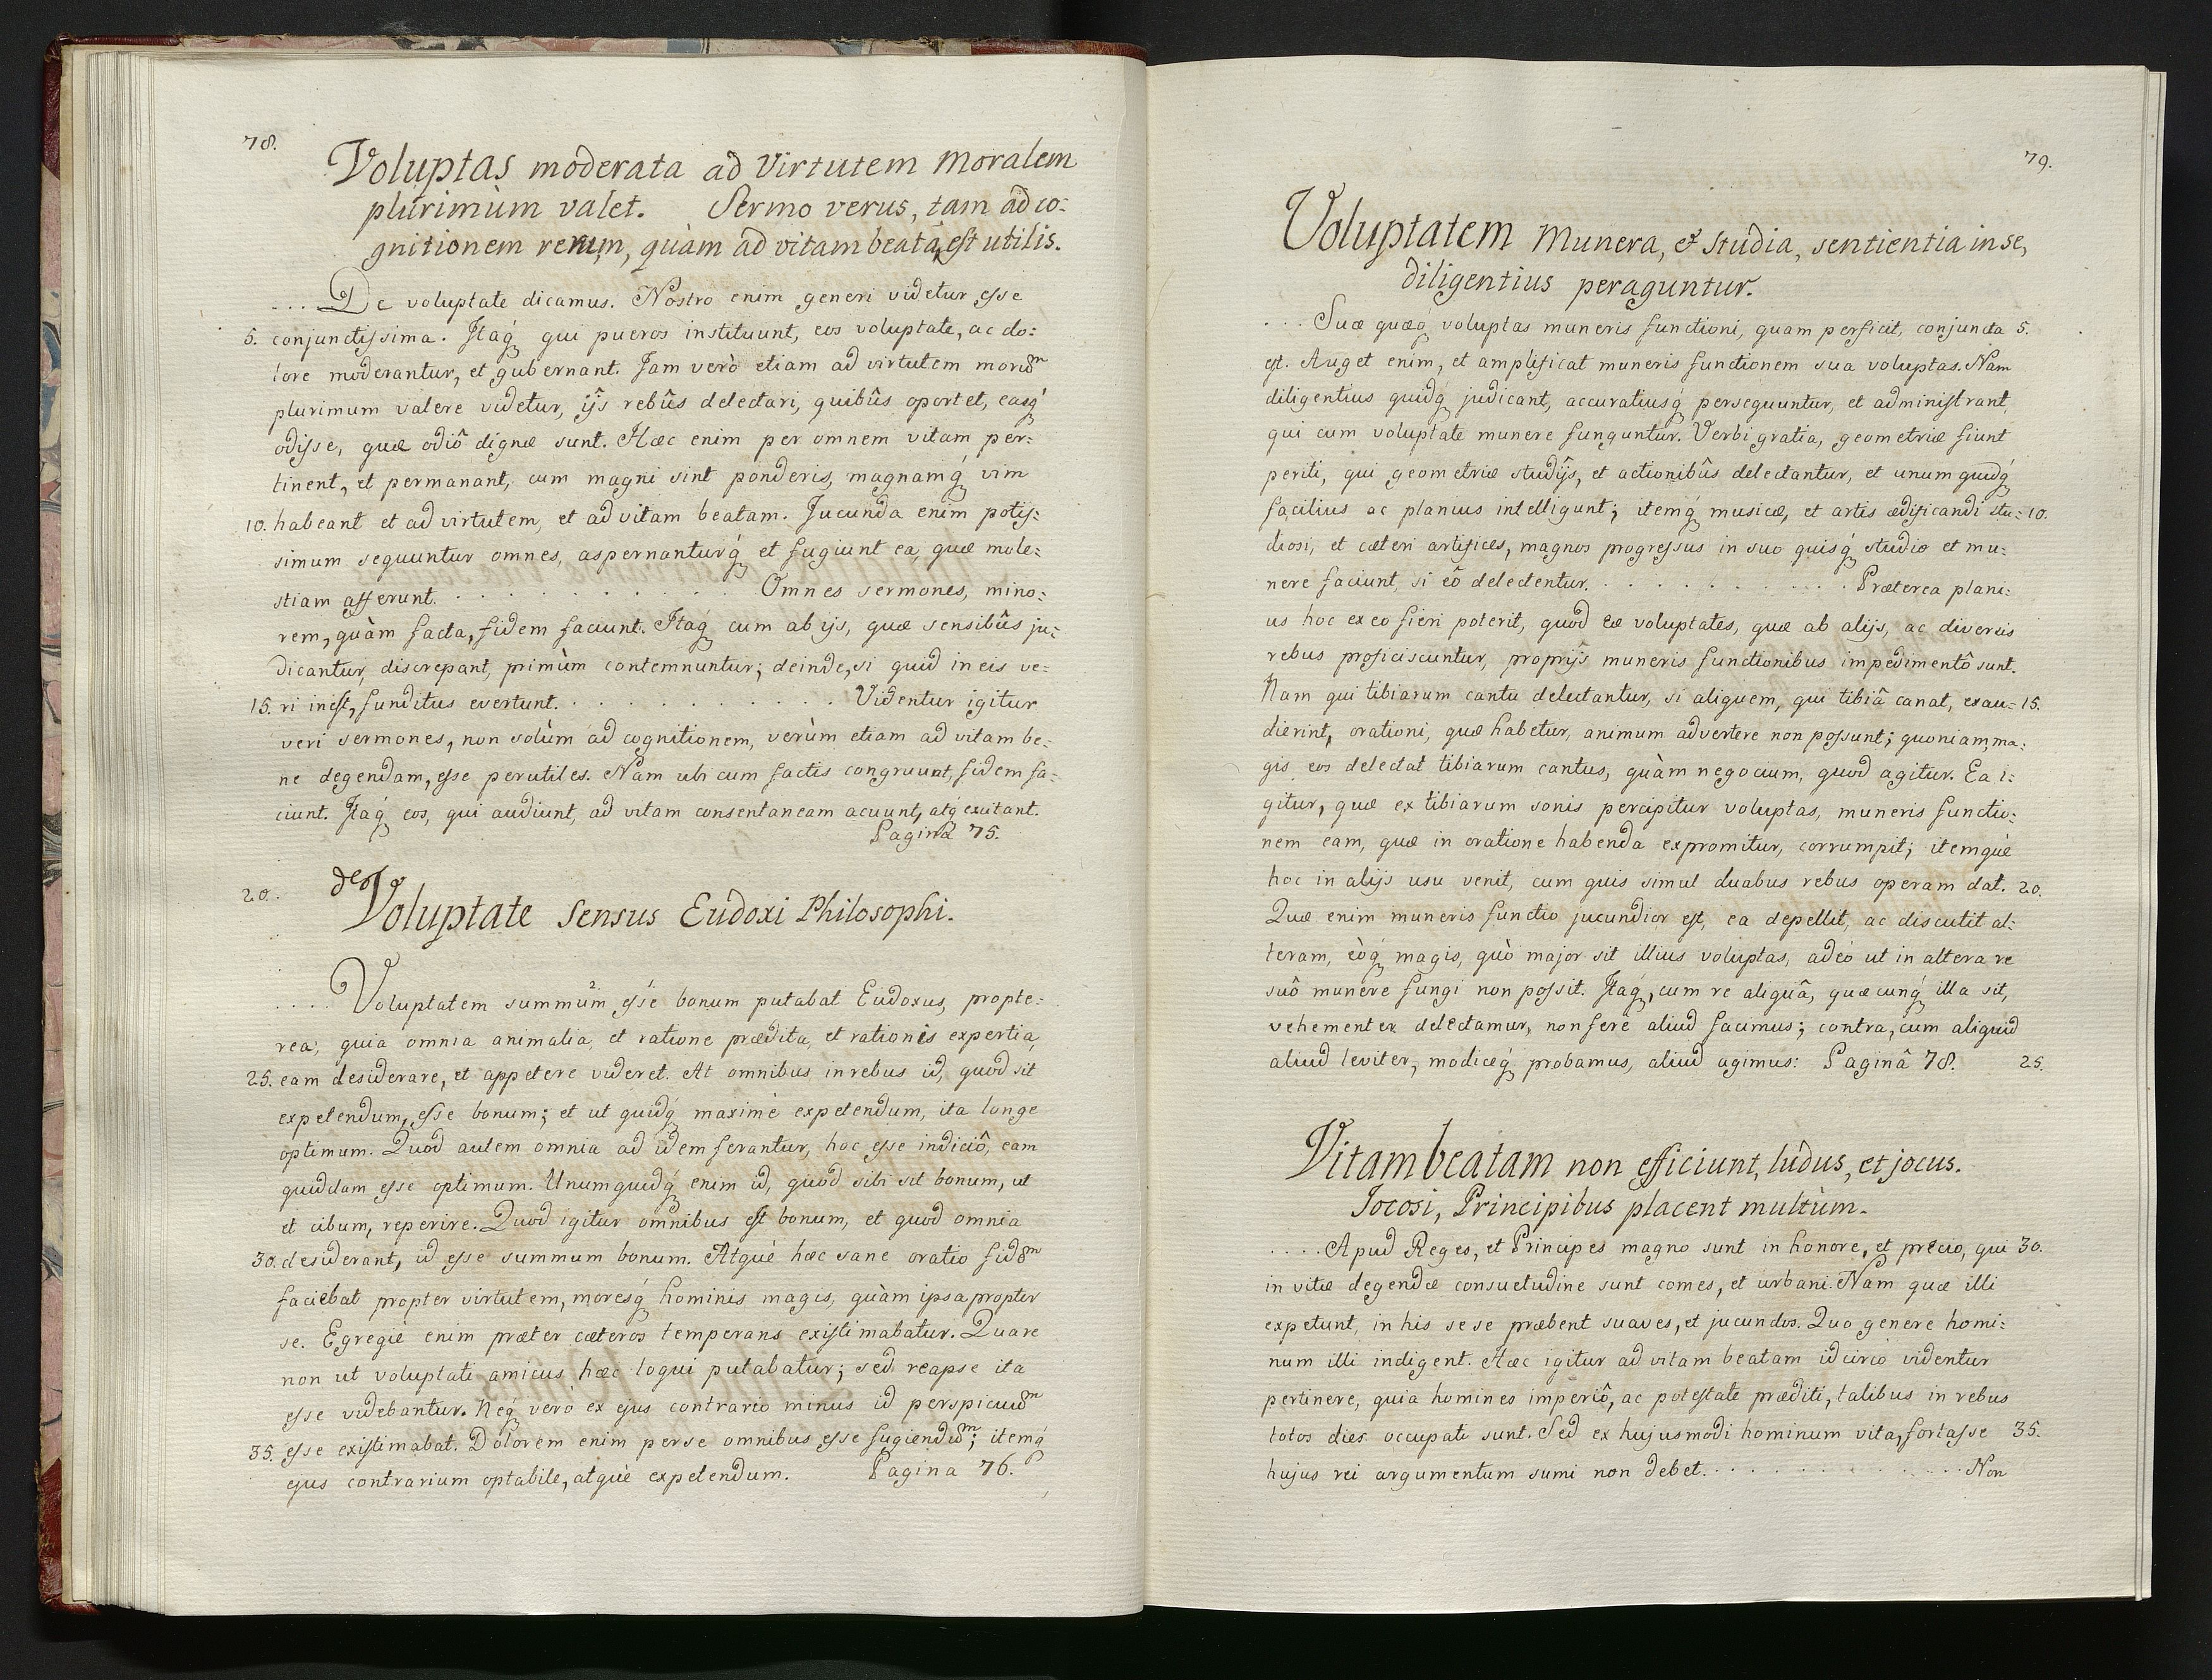 78.
Voluptas moderata ad Virtutem Moralem
plurimùm valet. Sermo verus, tam ad co:
gnitionem rerum, quàm ad vitam beatã, est utilis.
.... De voluptate dicamus. Nostro enim generi videtur esse
5. conjunctissima. Itaq́ qui pueros instituunt, eos voluptate, ac do:
lore moderantur, et gubernant. Jam verò etiam ad virtutem morũm
plurimum valere videtur, ijs rebûs delectari, quibûs oportet, easq́
odisse, quæ odiô dignæ sunt. Hæc enim per omnem vitam per:
tinent, et permanant, cum magni sint ponderis, magnamq́ vim
10. habeant et ad virtutem, et ad vitam beatam. Jucunda enim potis:
simum sequuntur omnes, aspernanturq́ et fugiunt ea, quæ mole:
stiam afferunt. . . . . . . . . . . Omnes sermones, mino:
rem, quàm facta, fidem faciunt. Itaq́ cum ab ijs, quæ sensibûs ju:
dicantur, discrepant, primùm contemnuntur; deinde, si quid in eis ve:
15. ri inest, funditus evertunt. . . . . . . . . . . Videntur igitur
veri sermones, non solùm ad cognitionem, verùm etiam ad vitam be:
ne degendam, esse perutiles. Nam ubi cum factis congruunt, fidem fa:
ciunt. Itaq́ eos, qui audiunt, ad vitam consentaneam acuunt, atq́ excitant.
Paginâ 75.
20. de Voluptate Sensus Eudoxi Philosophi.
.... Voluptatem summũm esse bonum putabat Eudoxus, propte:
rea, quia omnia animalia, et ratione prædita, et rationis expertia,
25. eam desiderare, et appetere videret. At omnibus in rebus id, quod sit
expetendum, esse bonum; et ut quidq́ maximè expetendum, ita longe
optimum. Quod autem omnia ad idem ferantur, hoc esse indiciô, eam
quiddam esse optimum. Unumquidq́ enim id, quod sibi sit bonum, ut
et cibum, reperire. Quod igitur omnibus est bonum, et quod omnia
30. desiderant, id esse summum bonum. Atquè hæc sane oratio fidem
faciebat propter virtutem, moresq́ hominis magis, quàm ipsa propter
se. Egregiè enim præter cæteros temperans existimabatur. Quare
non ut voluptati amicus hæc loqui putabatur; sed reapse ita
esse videbantur. Neq́ verò ex ejus contrario minus id perspicuũm
35. esse existimabat. Dolorem enim per se omnibus esse fugiendũm; itemq́
ejus contrarium optabile, atquè expetendum. Pagina 76.
79.
Voluptatem Munera, et studia, sentientia in se,
diligentius peraguntur.
... Suæ quæq́ voluptas muneris functioni, quam perficit, conjuncta 5.
est. Auget enim, et amplificat muneris functionem sua voluptas. Nam
diligentius quidq́ judicant, accuratiusq́ persequuntur, et administrant,
qui cum voluptate munere funguntur. Verbi gratia, geometriæ fiunt
periti, qui geometriæ studijs, et actionibûs delectantur, et unum quidq́
facilius ac planius intelligunt; itemq́ musicæ, et artis ædificandi stu: 10.
diosi, et cæteri artifices, magnos progressus in suo quisq́ studio et mu:
nere faciunt, si eô delectentur. . . . . . . . . . . . Præterea plani:
us hoc ex eo fieri poterit, quod eæ voluptates, quæ ab alijs, ac diversis
rebus proficiscuntur, proprijs muneris functionibus impedimentô sunt.
Nam qui tibiarum cantu delectantur, si aliquem, qui tibiâ canat, exau: 15.
dierint, orationi, quæ habetur, animum advertere non possunt; quoniam, ma:
gis eos delectat tibiarum cantus, quàm negocium, quod agitur. Ea i:
gitur, quæ ex tibiarum sonis percipitur voluptas, muneris functio:
nem eam, quæ in oratione habenda expromitur, corrumpit; itemquè
hoc in alijs usu venit, cum quis simul duabus rebus operam dat. 20.
Quæ enim muneris functio jucundior est, ea depellit, ac discutit al:
teram, eòq́ magis, quò major sit illius voluptas, adeò ut in altera re
suô munere fungi non possit. Itaq́, cum re aliquâ, quæcunq́ illa sit,
vehementer delectamur, non ferè aliud facimus; contra, cum aliquid
aliud leviter, modiceq́ probamus, aliud agimus: Paginâ 78. 25.
Vitam beatam non efficiunt, ludus, et jocus.
Jocosi, Principibus placent multùm.
.... Apud Reges, et Principes magno sunt in honore, et precio, qui 30.
in vitæ degendæ consuetudine sunt comes, et urbani. Nam quæ illi
expetunt, in his sese præbent suaves, et jucundos. Quo genere homi:
num illi indigent. Hæc igitur ad vitam beatam idcircò videntur
pertinere, quia homines imperiô, ac potestate præditi, talibus in rebus
totos dies occupati sunt. Sed ex hujusmodi hominum vita, fortasse 35.
hujus rei argumentum sumi non debet. . . . . . . . . . . . Non